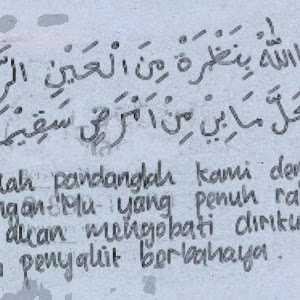 اللهُ بِنَظْرَةْ مِنَ الْعَيْنِ الرَّ
حَلَّ مَا بِيْ مِنْ اَمْرَضٍ سَقِيْمَ
lah pandanglah kami den
ngan Mu yang penuh ra
duan mengobati diriku
penyakit berbahaya.